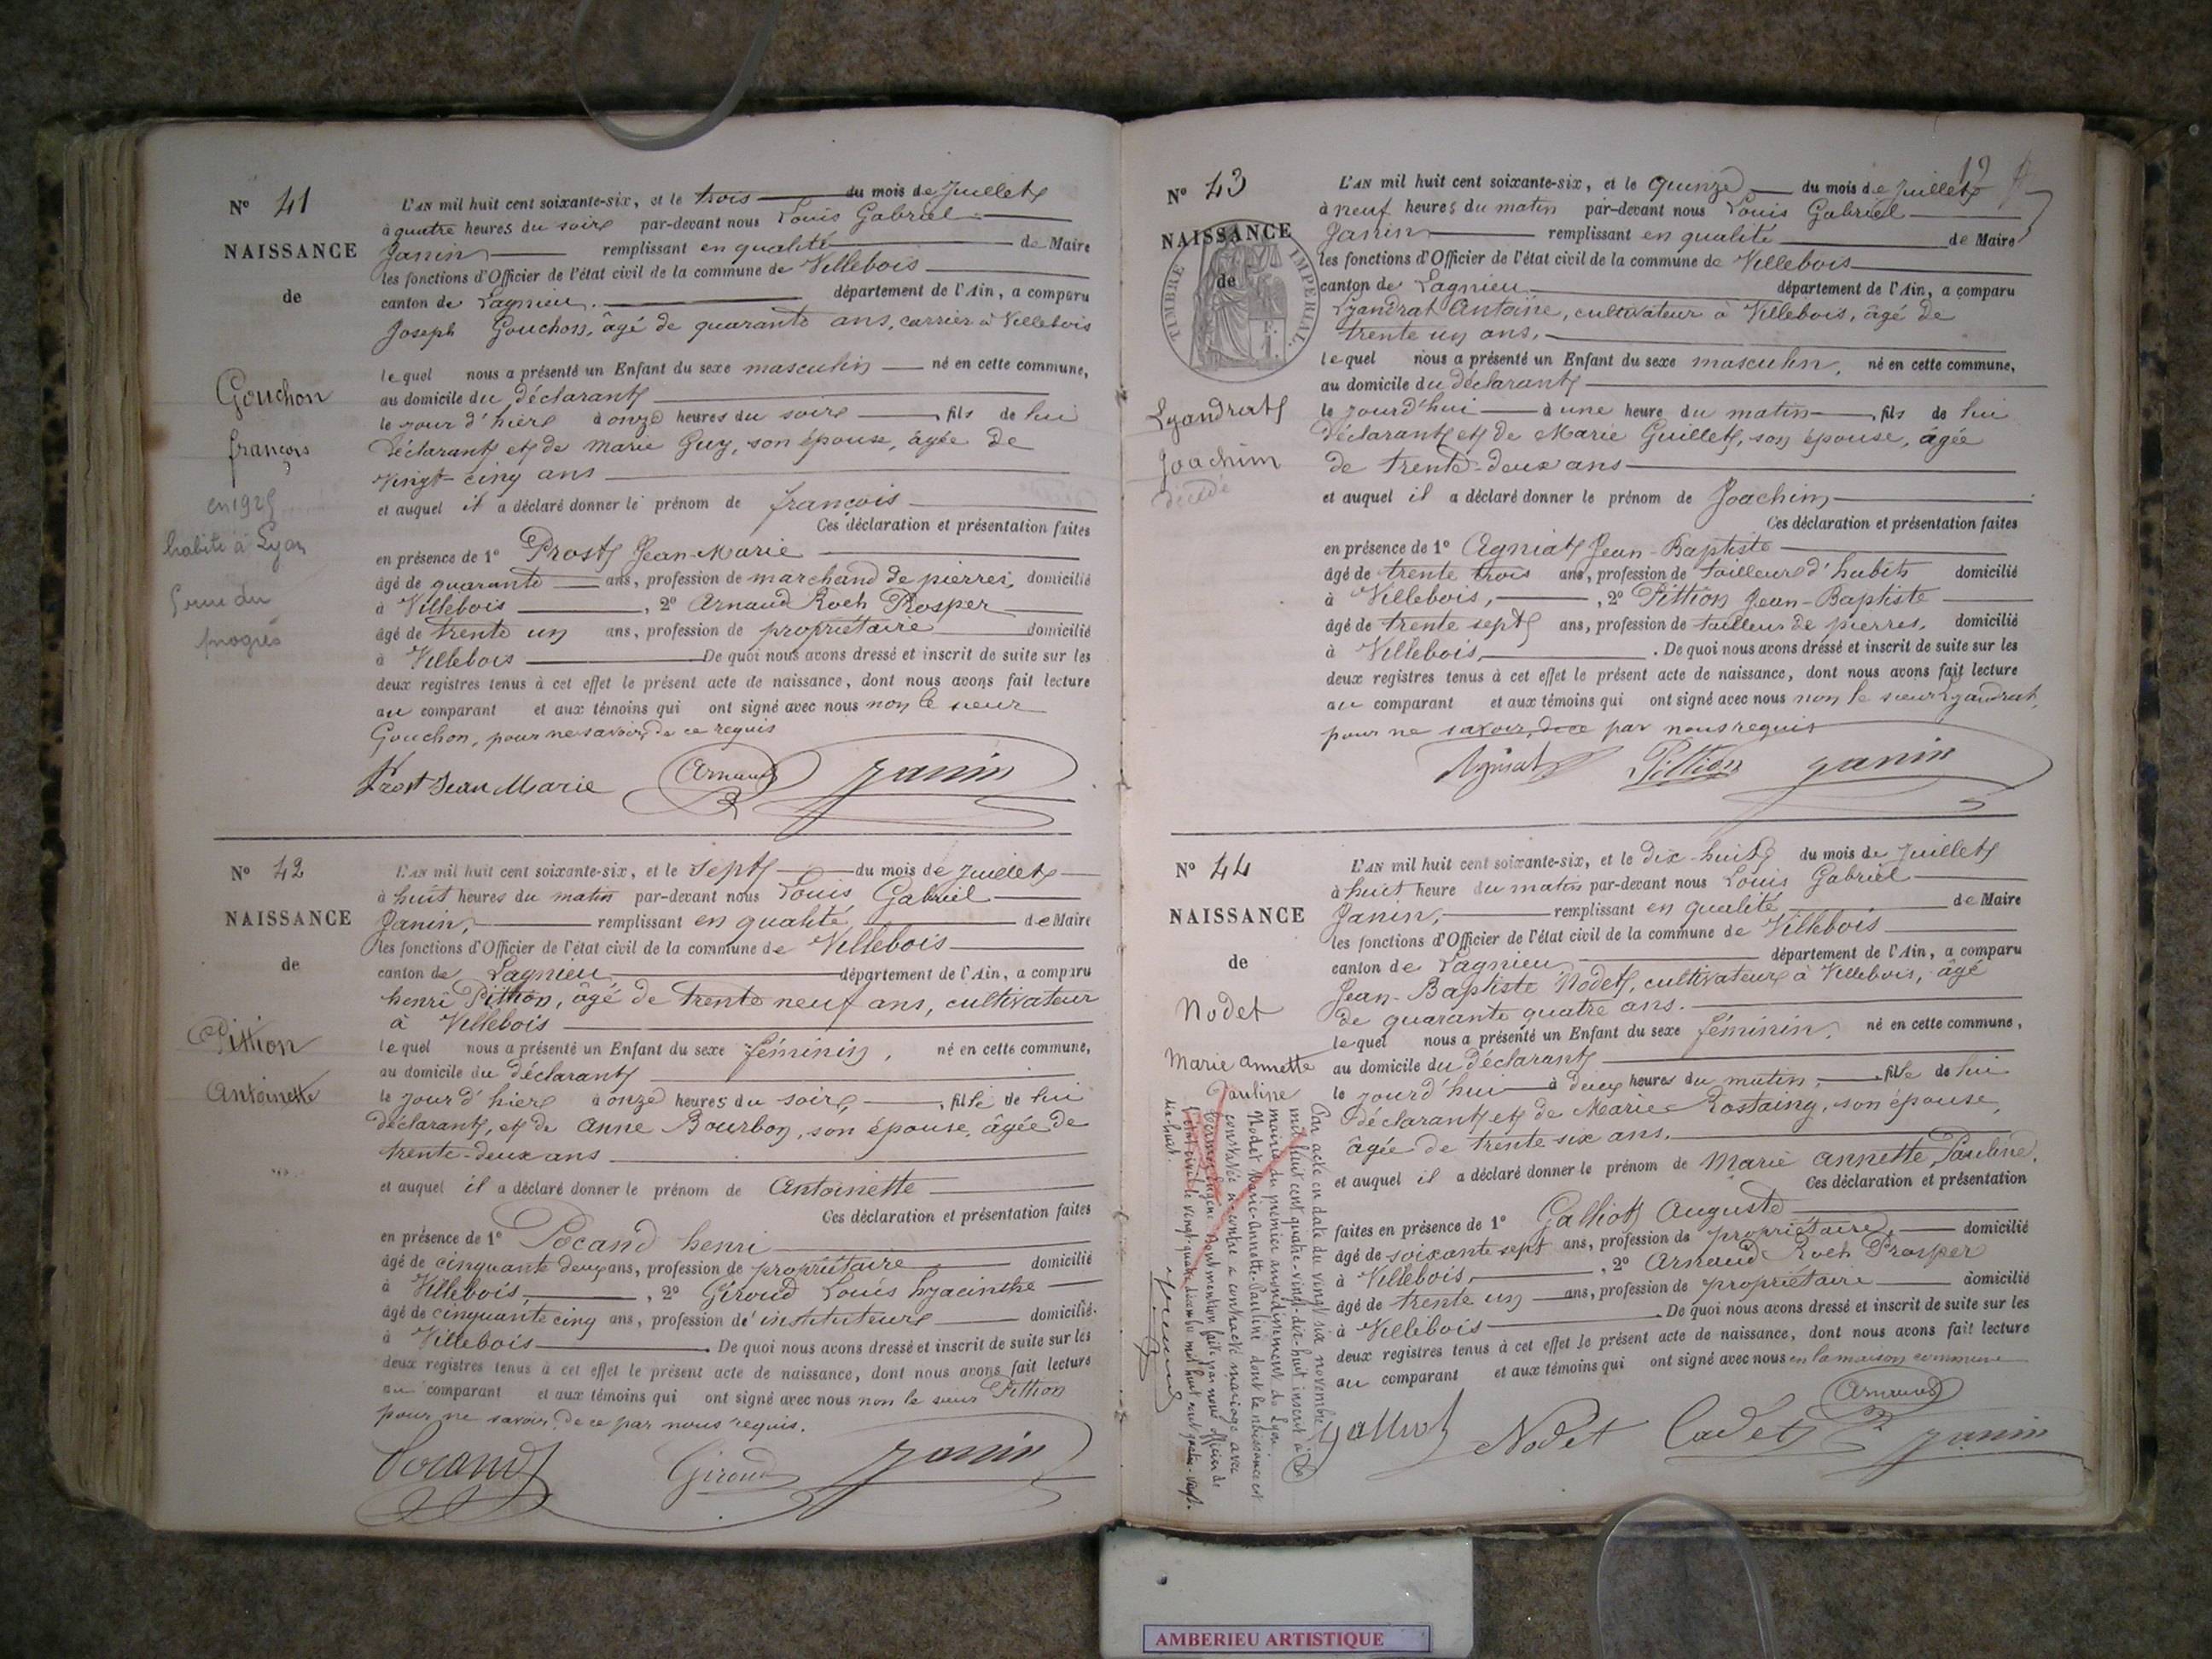 N° 41
NAISSANCE
de
Gouchon
françois
en 1925
habite à Lyon
rue du
progrès
L'AN mil huit cent soixante-six, et le trois du mois de Juillet
à quatre heures du soir par-devant nous Louis Gabriel
Janin remplissant en qualité de Maire
les fonctions d'Officier de l'état civil de la commune de Villebois
canton de Lagnieu département de l'Ain, a comparu
Joseph Gouchon, âgé de quarante ans, carrier à Villebois
lequel nous a présenté un Enfant du sexe masculin né en cette commune,
au domicile du déclarant
le jour d'hier à onze heures du soir, fils de lui
déclarant et de Marie Guy, son épouse, âgée de
vingt-cinq ans
et auquel il a déclaré donner le prénom de françois
Ces déclaration et présentation faites
en présence de 1° Prost Jean-Marie
âgé de quarante ans, profession de marchand de pierres, domicilié
à Villebois, 2° Arnaud Roch Prosper
âgé de trente un ans, profession de propriétaire domicilié
à Villebois De quoi nous avons dressé et inscrit de suite sur les
deux registres tenus à cet effet le présent acte de naissance, dont nous avons fait lecture
au comparant et aux témoins qui ont signé avec nous non le sieur
Gouchon, pour ne savoir, de ce requis
Prost Jean Marie Arnaud Janin
N° 42
NAISSANCE
de
Pittion
Antoinette
L'AN mil huit cent soixante-six, et le sept du mois de Juillet
à huit heures du matin par-devant nous Louis Gabriel
Janin, remplissant en qualité de Maire
les fonctions d'Officier de l'état civil de la commune de Villebois
canton de Lagnieu département de l'Ain, a comparu
henri Pittion, âgé de trente neuf ans, cultivateur
à Villebois
lequel nous a présenté un Enfant du sexe féminin, né en cette commune,
au domicile du déclarant
le jour d'hier à onze heures du soir, fille de lui
déclarant, et de Anne Bourbon, son épouse, âgée de
trente-deux ans
et auquel il a déclaré donner le prénom de Antoinette
Ces déclaration et présentation faites
en présence de 1° Pocand henri
âgé de cinquante deux ans, profession de propriétaire domicilié
à Villebois, 2° Giroud Louis hyacinthe
âgé de cinquante cinq ans, profession d'instituteur domicilié
à Villebois De quoi nous avons dressé et inscrit de suite sur les
deux registres tenus à cet effet le présent acte de naissance, dont nous avons fait lecture
au comparant et aux témoins qui ont signé avec nous non le sieur Pittion
pour ne savoir, de ce par nous requis.
Pocand Giroud Janin
19
N° 43
NAISSANCE
de
TIMBRE IMPERIAL
Lyandrat
Joachim
décédé
L'AN mil huit cent soixante-six, et le Quinze du mois de Juillet
à neuf heures du matin par-devant nous Louis Gabriel
Janin remplissant en qualité de Maire
les fonctions d'Officier de l'état civil de la commune de Villebois
canton de Lagnieu département de l'Ain, a comparu
Lyandrat Antoine, cultivateur à Villebois, âgé de
trente un ans,
lequel nous a présenté un Enfant du sexe masculin, né en cette commune,
au domicile du déclarant
le jourd'hui à une heure du matin, fils de lui
déclarant et de Marie Guillet, son épouse, âgée
de trente-deux ans
et auquel il a déclaré donner le prénom de Joachim
Ces déclaration et présentation faites
en présence de 1° Agniat Jean-Baptiste
âgé de trente trois ans, profession de tailleur d'habits domicilié
à Villebois, 2° Pittion Jean-Baptiste
âgé de trente sept ans, profession de tailleur de pierres, domicilié
à Villebois, . De quoi nous avons dressé et inscrit de suite sur les
deux registres tenus à cet effet le présent acte de naissance, dont nous avons fait lecture
au comparant et aux témoins qui ont signé avec nous non le sieur Lyandrat,
pour ne savoir, de ce par nous requis
Agniat Pittion Janin
N° 44
NAISSANCE
de
Nodet
Marie Annette
Pauline
Par acte en date du vingt six novembre
mil huit cent quatre-vingt-dix-huit inscrit à la
mairie du premier arrondissement de Lyon,
Nodet Marie-Annette-Pauline dont la naissance est
constatée ci-contre a contracté mariage avec
Eugène Dont mention faite par nous officier de
l'état civil le vingt quatre décembre mil huit cent quatre-vingt-
dix-huit.
L'AN mil huit cent soixante-six, et le dix-huit du mois de Juillet
à huit heure du matin par-devant nous Louis Gabriel
Janin, remplissant en qualité de Maire
les fonctions d'Officier de l'état civil de la commune de Villebois
canton de Lagnieu département de l'Ain, a comparu
Jean-Baptiste Nodet, cultivateur à Villebois, âgé
de quarante quatre ans.
lequel nous a présenté un Enfant du sexe féminin, né en cette commune,
au domicile du déclarant
le jourd'hui à deux heures du matin, fille de lui
déclarant et de Marie Rostaing, son épouse,
âgée de trente six ans,
et auquel il a déclaré donner le prénom de Marie Annette, Pauline.
Ces déclaration et présentation
faites en présence de 1° Galliot Auguste
âgé de soixante sept ans, profession de propriétaire domicilié
à Villebois, 2° Arnaud Roch Prosper
âgé de trente un ans, profession de propriétaire domicilié
à Villebois De quoi nous avons dressé et inscrit de suite sur les
deux registres tenus à cet effet le présent acte de naissance, dont nous avons fait lecture
au comparant et aux témoins qui ont signé avec nous en la maison commune
Arnaud
Galliot Nodet Cadet Janin
AMBERIEU ARTISTIQUE